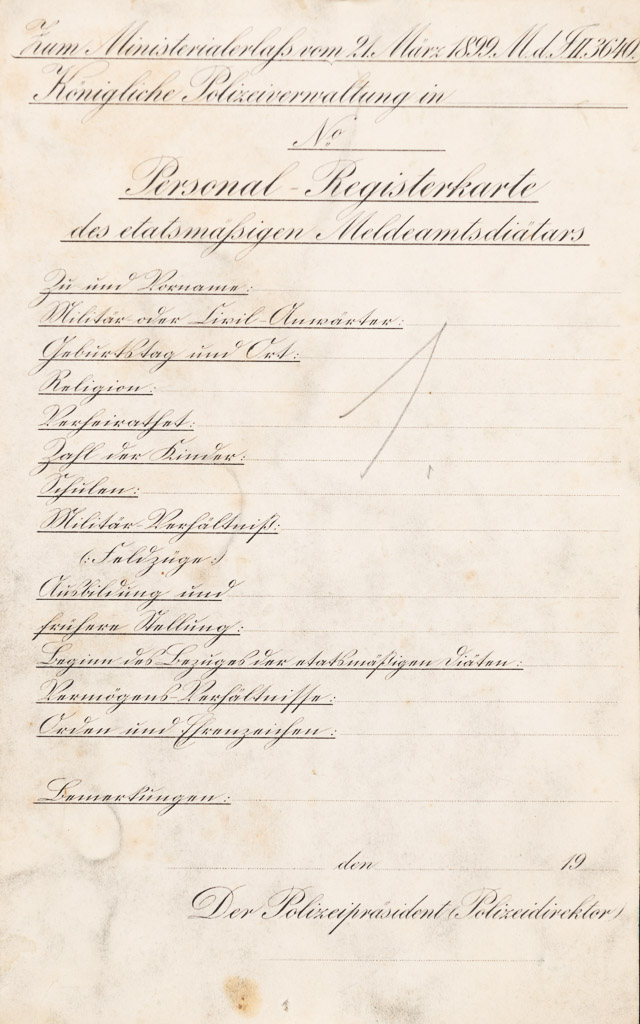 Zum Ministerialerlaß vom 21. März 1899. M.d.J.II.3640.
Königliche Polizeiverwaltung in
No
Personal-Registerkarte
des etatsmäßigen Meldeamtsdiätars
Zu und Vorname:
Militär oder Civil-Anwärter:
Geburtstag und Ort:
Religion:
Verheirathet:
Zahl der Kinder:
Schulen:
Militär-Verhältniß:
(: Feldzüge :)
Ausbildung und
frühere Stellung:
Beginn des Bezuges der etatsmäßigen Diäten:
Vermögens-Verhältnisse:
Orden und Ehrenzeichen:
Bemerkungen:
den 19
Der Polizeipräsident (Polizeidirektor)